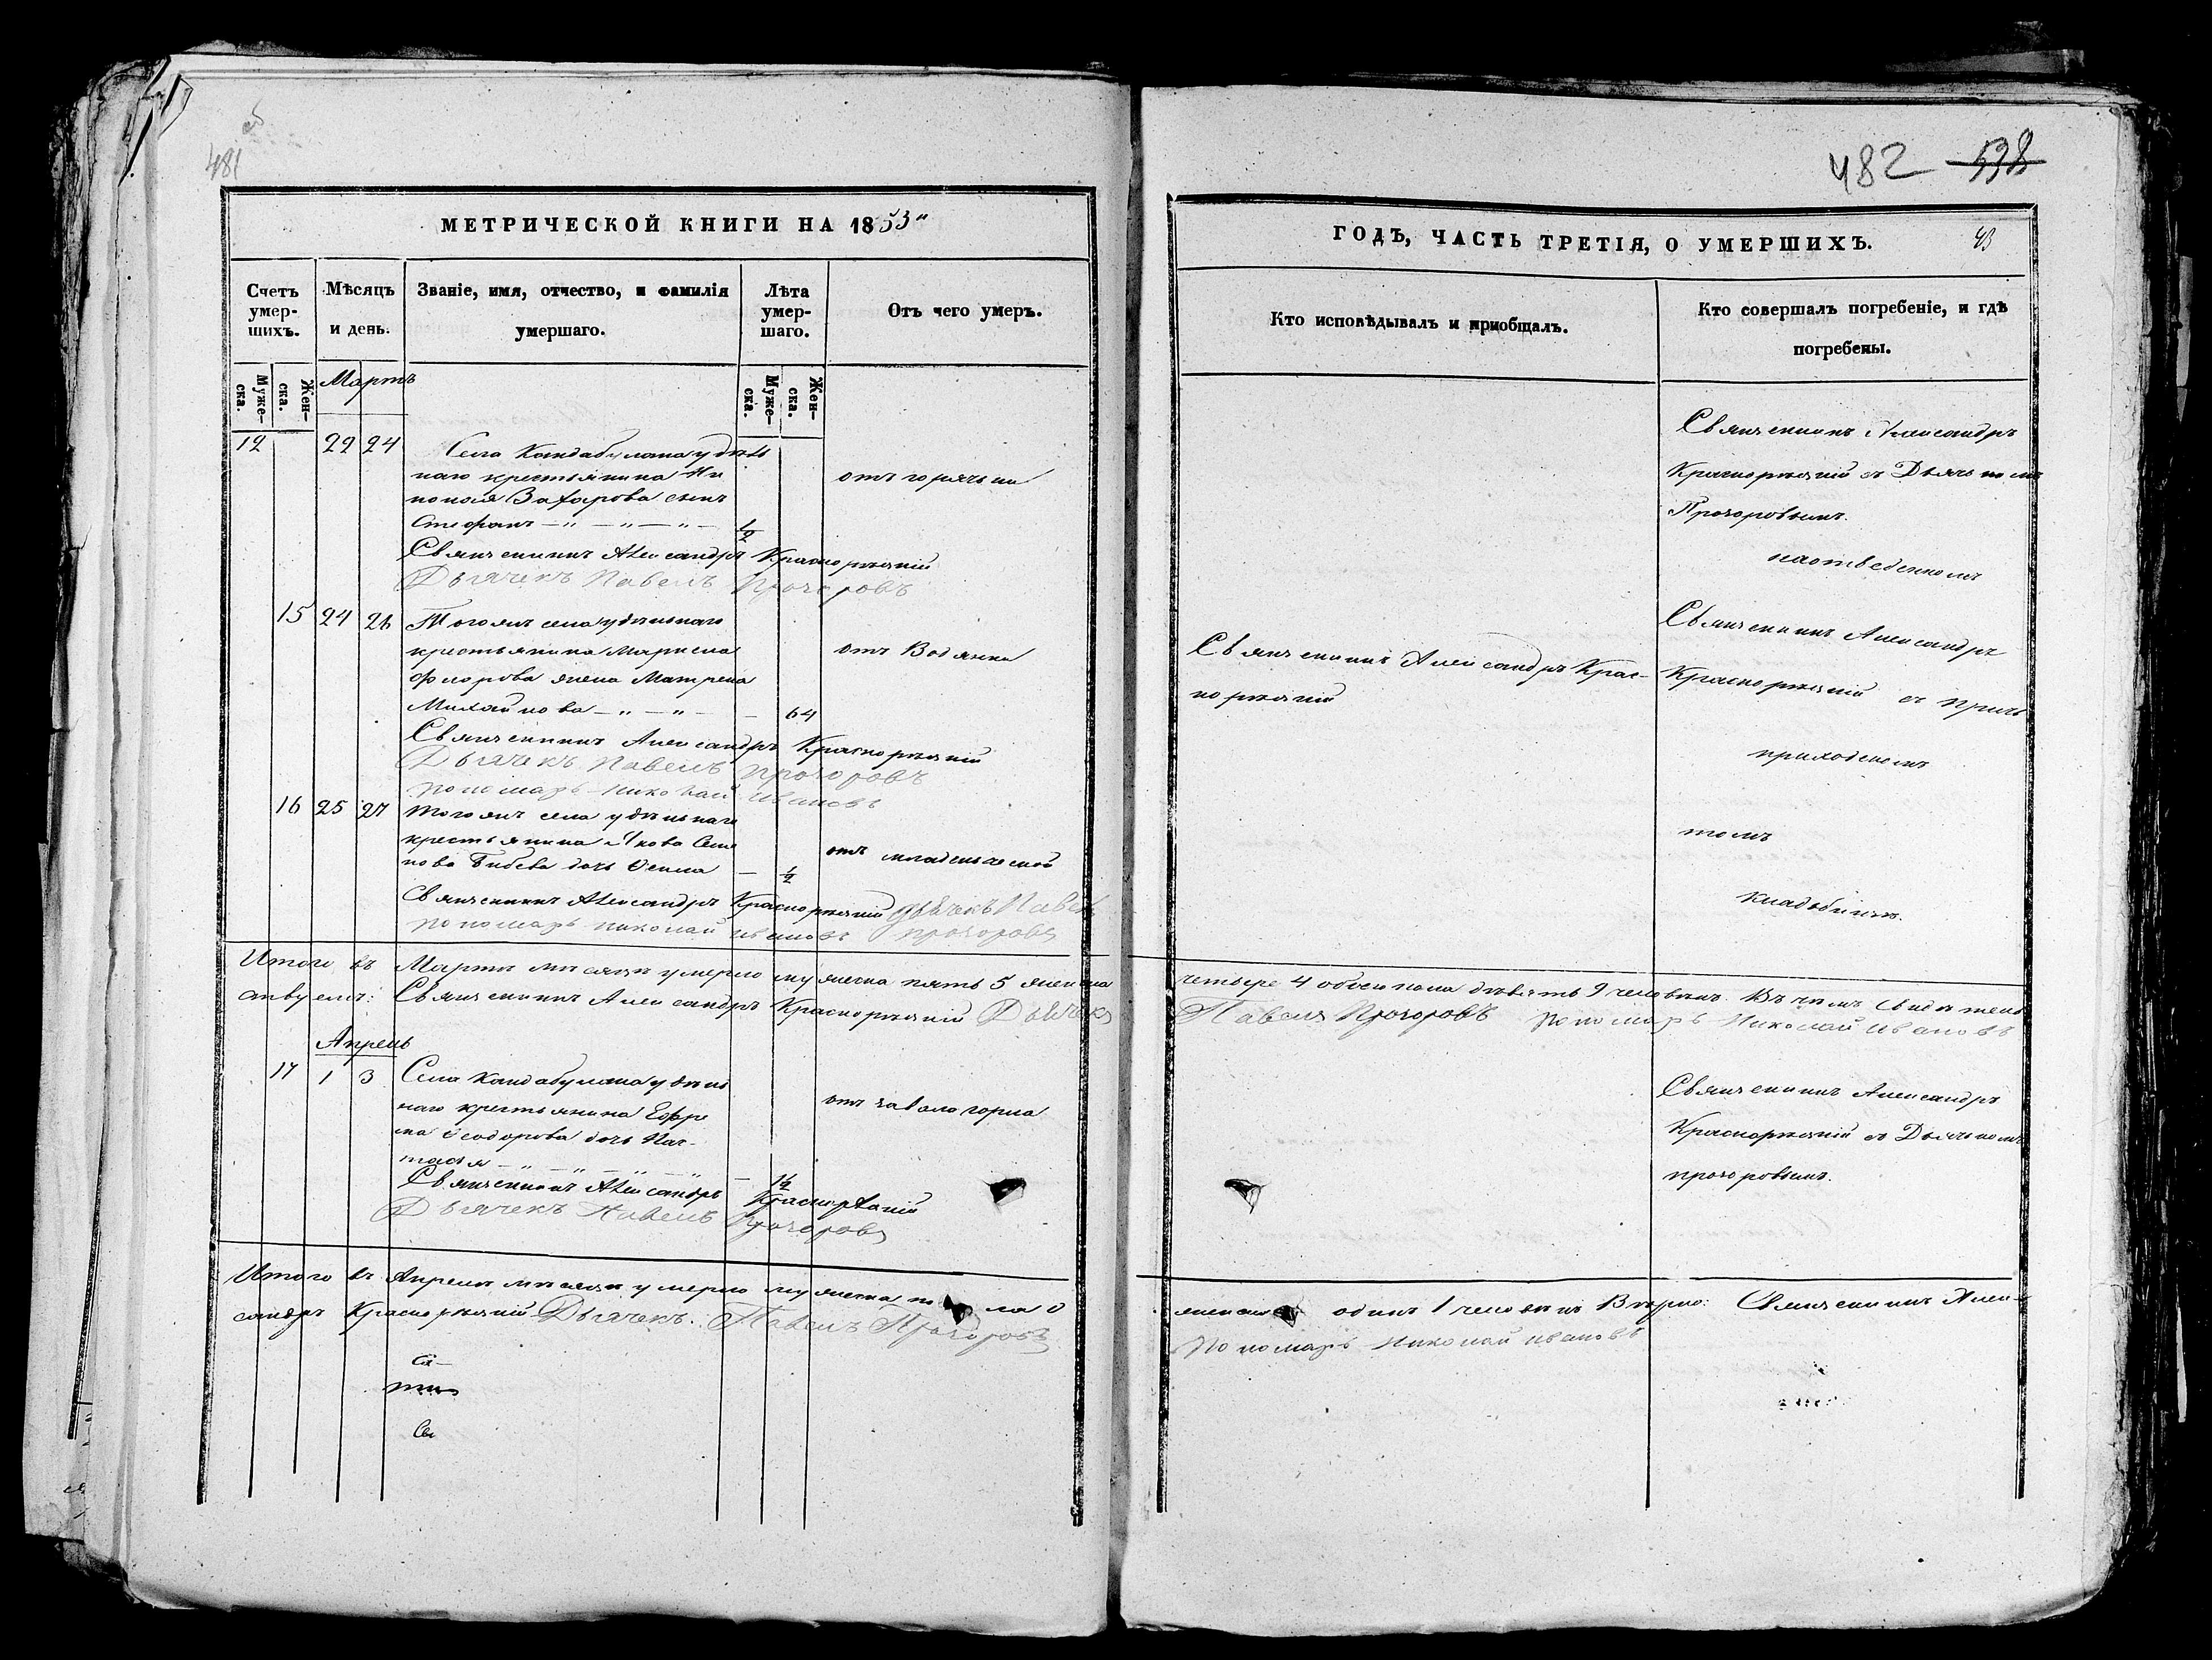 481
МЕТРИЧЕСКОЙ КНИГИ НА 1853
Счетъ умер-шихъ.
Мѣсяцъ и день.
Званіе, имя, отчество, и фамилія умершаго.
Лѣта умер-шаго.
Отъ чего умеръ.
Муже-ска.
Жен-ска.
Мартъ
Муже-ска.
Жен-ска.
12 22 24 Села Кандабулака удѣль
наго крестьянина Ни
колая Захарова сынъ отъ горячки
Стефанъ 1/2
Священникъ Александръ Краснорѣцкій
Дьячекъ Павелъ Прохоровъ
15 24 26 Тогожъ села удѣльнаго
крестьянина Маркела отъ Водянки
Флорова жена Матрена
Михайлова 64
Священникъ Александръ Краснорѣцкій
Дьячекъ Павелъ Прохоровъ
Пономарь Николай Ивановъ
16 25 27 Тогожъ села удѣльнаго
крестьянина Якова Семе
нова дочь отъ младенческой
1/2
Священникъ Александръ Краснорѣцкій Дьячекъ Павелъ
Пономарь Николай Ивановъ Прохоровъ
Итого въ Мартѣ мѣсяцѣ умерло мужеска пять 5 женска
ствуемъ: Священникъ Александръ Краснорѣцкій Дьячекъ
Апрель
17 1 3 Села Кандабулака удѣль
наго крестьянина Ефре
ма Ѳеодорова дочь Нас- отъ завало горла
тасья 1/2
Священникъ Александръ Краснорѣцкій
Дьячекъ Павелъ Прохоровъ
Итого въ Апрелѣ мѣсяцѣ умерло мужеска по ла 0
сандръ Краснорѣцкій Дьячекъ. Павелъ Прохоровъ
Св
482 538
ГОДЪ, ЧАСТЬ ТРЕТІЯ, О УМЕРШИХЪ.
43
Кто исповѣдывалъ и пріобщалъ.
Кто совершалъ погребеніе, и гдѣ погребены.
Священникъ Александръ
Краснорѣцкій съ Дьячькомъ
Прохоровымъ.
на отведенномъ
Священникъ Александръ Крас-
норѣцкій
Священникъ Александръ
Краснорѣцкій съ Причь
томъ
приходскомъ
кладбищѣ.
четыре 4 обоего пола девять 9 человѣкъ. Въ чемъ Свидѣтель
Павелъ Прохоровъ Пономарь Николай Ивановъ
Священникъ Александръ
Краснорѣцкій съ Дьячькомъ
Прохоровымъ.
женска одинъ 1 человѣкъ Вѣрно: Священникъ Алек-
Пономарь Николай Ивановъ